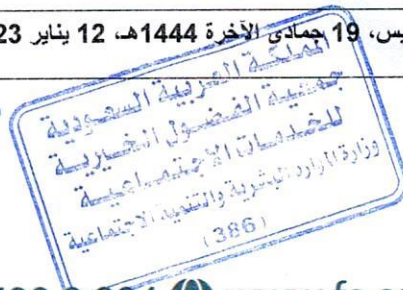 يس، 19 جمادى الآخرة 1444هـ، 12 يناير 23
المملكة العربية السعودية
جمعية الفضول الخيرية
للخدمات الاجتماعية
وزارة الموارد البشرية والتنمية الاجتماعية
(386)